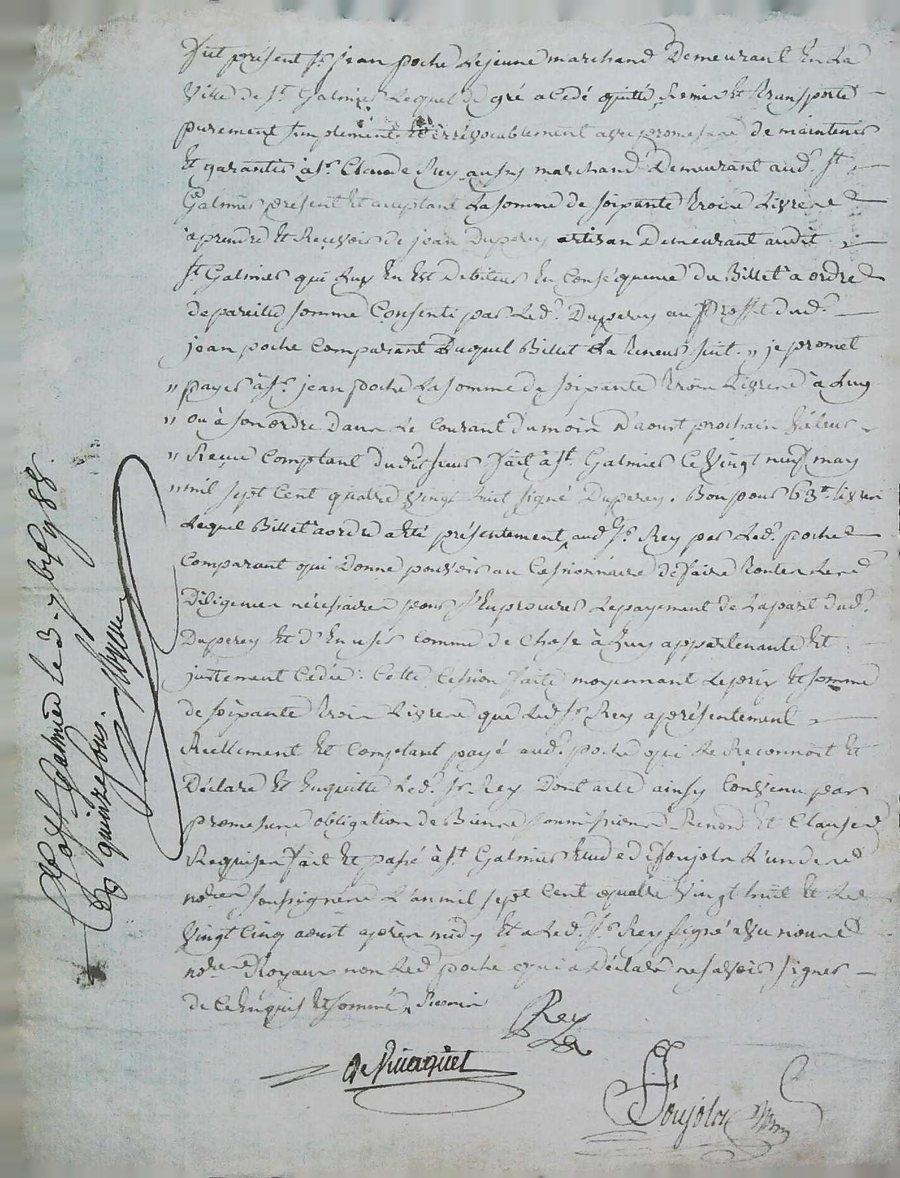 Fut présent Sr. jean poche Lejeune marchand Demeurant En La
Ville de St. Galmier Lequel de gré a Cedé quitté Remis Et Transporté
purement simplement Et irrévocablement avec promesse de maintenir
Et garantir à Sr. Claude Rey aussy marchand Demeurant aud. St.
Galmier présent Et acceptant La somme de soixante Trois Livres
aprendre Et Recevoir de jean Duperey artisan Demeurant audit
St. Galmier qui Luy En Est Debiteur En Conséquence du Billet a ordre
de pareille somme Consenti par Led. Duperey au Proffit dud.
jean poche Comparant Duquel Billet La Teneur suit. „ je promet
„ payer à Sr. jean poche La somme de soixante Trois Livres à Luy
„ ou à son ordre Dans Le Courant du mois D'aoust prochain Valeur
„ Reçue Comptant dudit sieur fait à St. Galmier Ce Vingt neuf may
„ mil sept Cent quatre Vingt huit signé Duperey. Bon pour 63 tt Livres
Lequel Billet a ordre a été présentement aud. Sr. Rey par Led. poche
Comparant qui Donne pouvoir au Cessionnaire de faire Toutes Les
Diligences nécessaires pour s'En procurer Le payement de La part dud.
Duperey Et d'En user comme de Chose à Luy appartenante Et
justement Cédée : Cette Cession faite moyennant Le prix Et somme
de soixante Trois Livres que Led. Sr. Rey a présentement
Reellement Et Comptant payé aud. poche qui Le Reconnoit Et
Déclare Et En quitte Led. Sr. Rey Dont acte ainsy Convenu par
promesses obligation de Biens soumissions Renon. Et Clauses
Requises fait Et passé à St. Galmier Etude d Soujolon L'un des
nores soussignés L'an mil sept Cent quatre Vingt huit Et Le
Vingt Cinq aoust après midy Et a Led. Sr. Rey signé avec nous
nores Royaux non Led. poche qui a Déclaré ne savoir signer
de Ce Enquis Et sommé
Rey
Soujolon
St Galmier le 3 7bre 1788.
quinze sous.